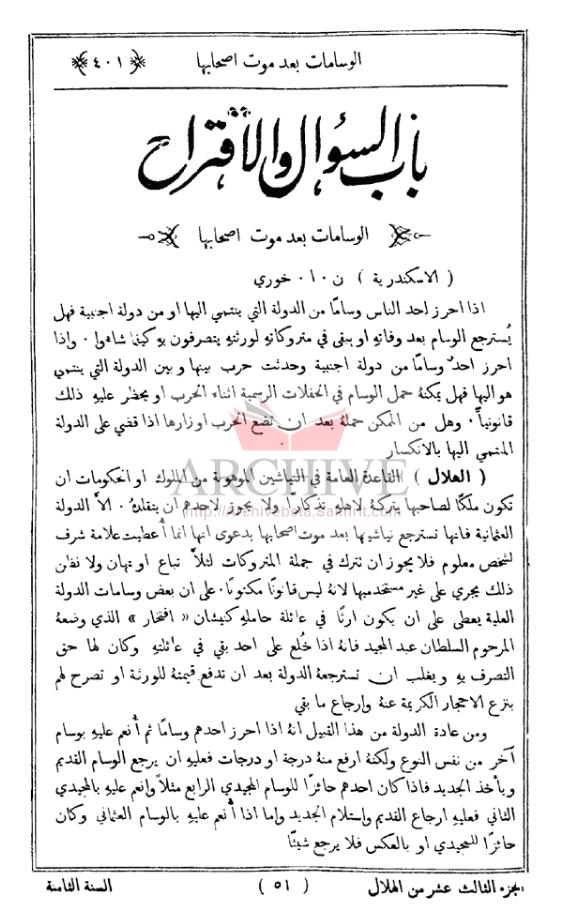 الوسامات بعد موت اصحابها ﴿٤٠١﴾
باب السؤال والاقتراح
الوسامات بعد موت اصحابها
( الاسكندرية ) ن . ١ . خوري
اذا احرز احد الناس وسامًا من الدولة التي ينتمي اليها او من دولة اجنبية فهل
يُسترجع الوسام بعد وفاته او يبقى في متروكاته لورثته يتصرفون به كيفما شاءوا . واذا
احرز احدٌ وسامًا من دولة اجنبية وحدثت حرب بينها وبين الدولة التي ينتمي
هو اليها فهل يمكنهُ حمل الوسام في الحفلات الرسمية اثناء الحرب او يحظر عليه ذلك
قانونيًا . وهل من الممكن حملهُ بعد ان تضع الحرب اوزارها اذا قضي على الدولة
المنتمي اليها بالانكسار .
( الهلال ) القاعدة العامة في النياشين الموهوبة من الملوك او الحكومات ان
تكون ملكًا لصاحبها يتركهُ لاهله تذكارًا ولا يجوز لاحدهم ان يتقلدهُ . الاَّ الدولة
العثمانية فانها تسترجع نياشينها بعد موت اصحابها بدعوى انها انما أعطيت علامة شرف
لشخص معلوم فلا يجوز ان تترك في جملة المتروكات لئلاَّ تباع او تهان ولا نظن
ذلك يجري على غير مستخدميها لانهُ ليس قانونًا مكنونًا . على ان بعض وسامات الدولة
العلية يعطى على ان يكون ارثًا في عائلة حامله كنيشان « افتخار » الذي وضعهُ
المرحوم السلطان عبد المجيد فانهُ اذا خُلع على احد بقي في عائلته وكان لها حق
التصرف به ويغلب ان تسترجعهُ الدولة بعد ان تدفع قيمتهُ للورثة او تصرح لهم
بنزع الاحجار الكريمة عنهُ وارجاع ما بقي
ومن عادة الدولة من هذا القبيل انهُ اذا احرز احدهم وسامًا ثم أُنعم عليه بوسام
آخر من نفس النوع ولكنهُ ارفع منهُ درجة او درجات فعليه ان يرجع الوسام القديم
ويأخذ الجديد فاذا كان احدهم حائزًا للوسام المجيدي الرابع مثلاً وانعم عليه بالمجيدي
الثاني فعليه ارجاع القديم واستلام الجديد واما اذا أُنعم عليه بالوسام العثماني وكان
حائزًا للمجيدي او بالعكس فلا يرجع شيئًا
الجزء الثالث عشر من الهلال ( ٥١ ) السنة الثامنة
ARCHIVE
http://archivebeta.Sakhrit.com